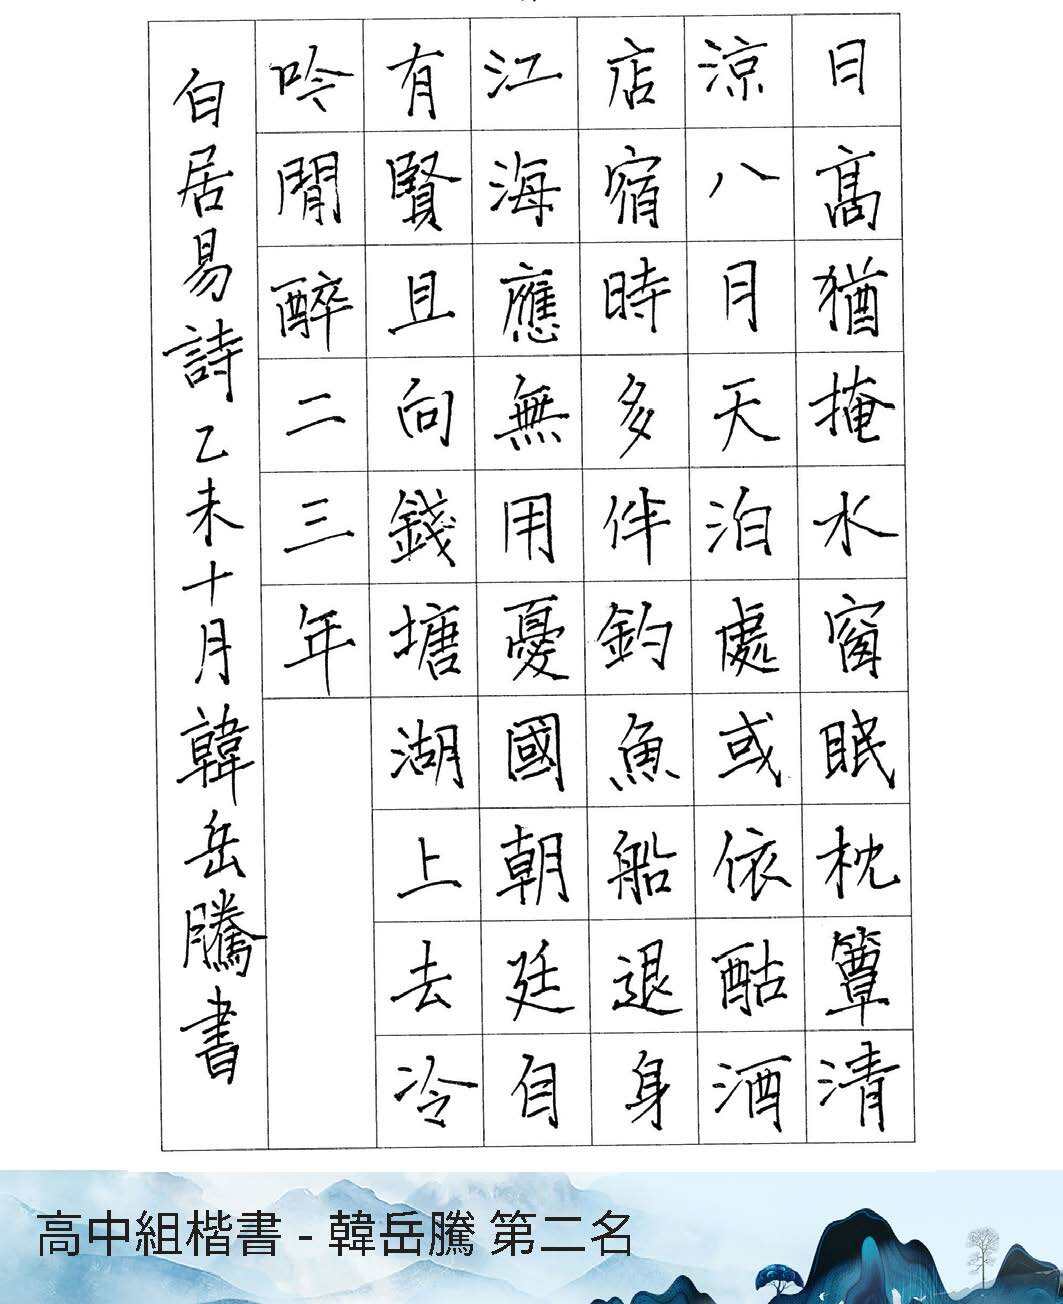 日高猶掩水窗眠枕簟清
涼八月天泊處或依酤酒
店宿時多伴釣魚船退身
江海應無用憂國朝廷自
有賢且向錢塘湖上去冷
吟閒醉二三年
白居易詩乙未十月韓岳騰書
高中組楷書 - 韓岳騰 第二名